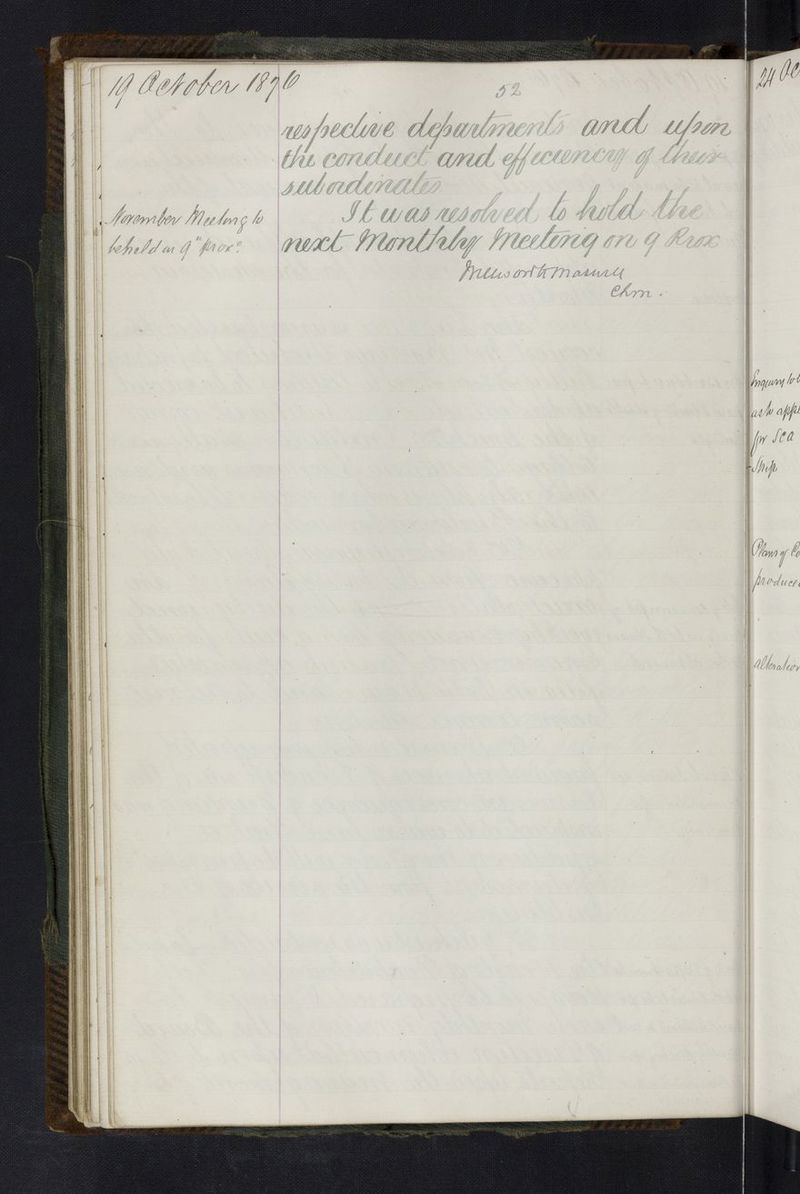 19 October 1876
52
respective departments and upon
the conduct and efficiency of their
subordinates
It was resolved to hold the
next Monthly Meeting on 9 Prox
November Meeting to
be held on 9th proxo
Chm.
24 Oc
Inquiry to b
as to appl
for Sea
Ship
Plans of Co
produce
alteration